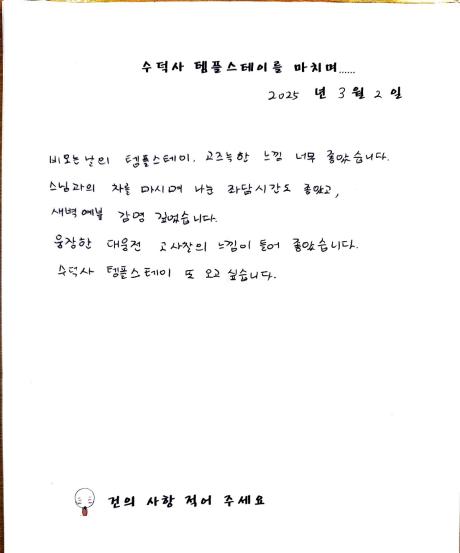 수덕사 템플스테이를 마치며......
2025 년 3 월 2 일
비오는날의 템플스테이. 고즈늑한 느낌 너무 좋았습니다.
스님과의 차를 마시며 나눈 차담시간도 좋았고,
새벽예불 감명 깊었습니다.
웅장한 대웅전 고사찰의 느낌이 들어 좋았습니다.
수덕사 템플스테이 또 오고 싶습니다.
건의 사항 적어 주세요